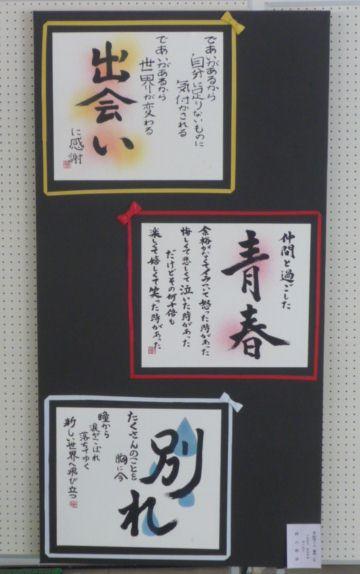 であいがあるから
自分に足りないものに
気付かされる
であいがあるから
世界が変わる
出会い
に感謝
仲間と過ごした
青春
余裕がなくてイラついて怒った時があった
悔しくて悲しくて泣いた時があった
だけどその何千倍も
楽しくて嬉しくて笑った時があった
別れ
たくさんのことを
胸に今
瞳から
涙がこぼれ
落ちてゆく
新しい世界へ飛び立つ